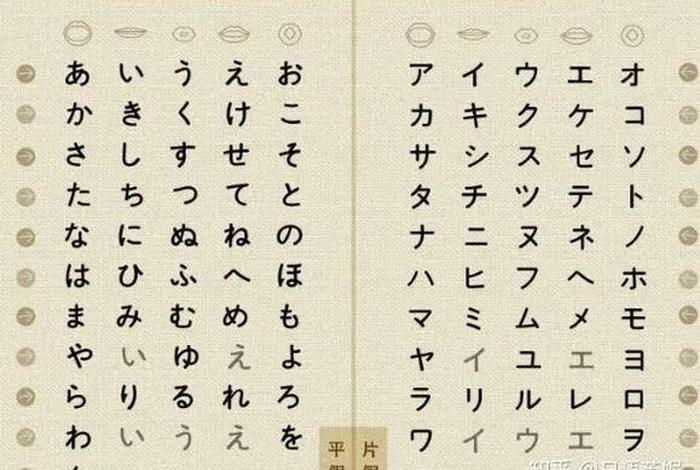 あ い う え お ア イ ウ エ オ
か き く け こ カ キ ク ケ コ
さ し す せ そ サ シ ス セ ソ
た ち つ て と タ チ ツ テ ト
な に ぬ ね の ナ ニ ヌ ネ ノ
は ひ ふ へ ほ ハ ヒ フ ヘ ホ
ま み む め も マ ミ ム メ モ
や い ゆ え よ ヤ イ ユ エ ヨ
ら り る れ ろ ラ リ ル レ ロ
わ い う え を ワ イ ウ エ ヲ
平 片